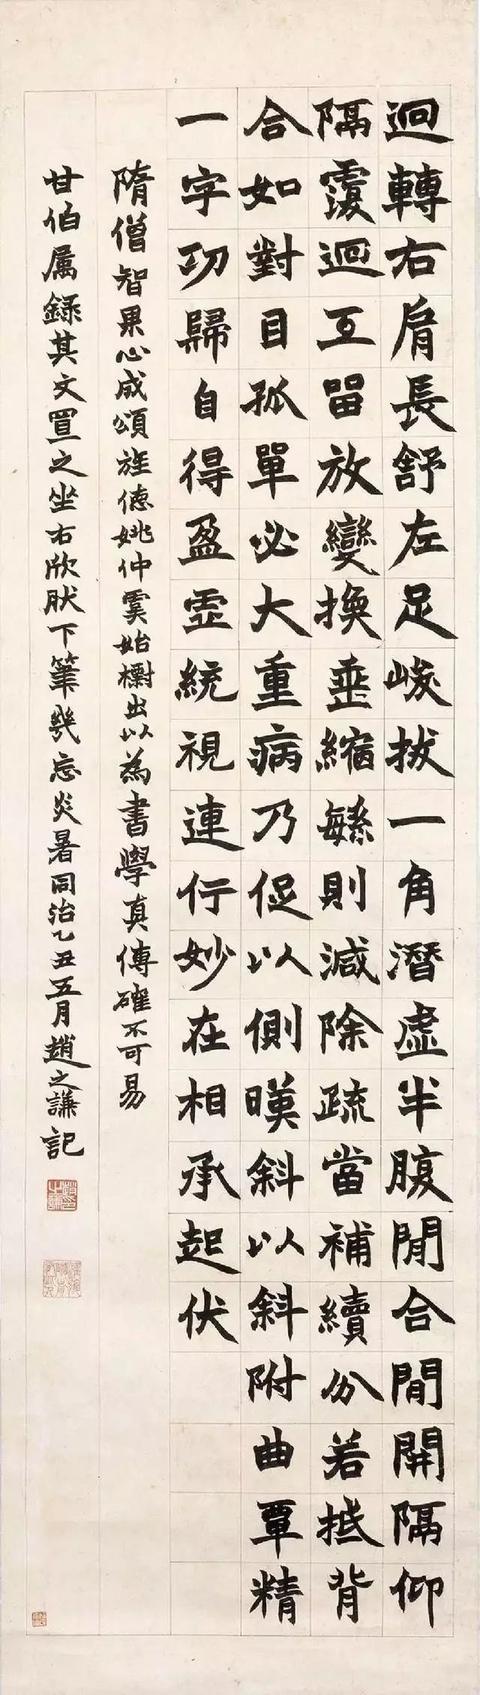 迴轉右肩長舒左足峻拔一角潛虛半腹閒合閒開隔仰
隔覆迴互畱放變換垂縮緐則減除疏當補續分若抵背
合如對目孤單必大重病乃促以側暎斜以斜附曲覃精
一字功歸自得盈虛統視連行妙在相承起伏
隋僧智果心成頌旌德姚仲虞始櫥出以為書學真傳確不可易
甘伯属錄其文置之坐右欣肰下筆幾忘炎暑同治乙丑五月趙之謙記